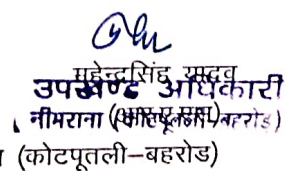 महेन्द्रसिंह यादव
उपखण्ड अधिकारी
नीमराना (कोटपूतली-बहरोड)
(कोटपूतली–बहरोड)